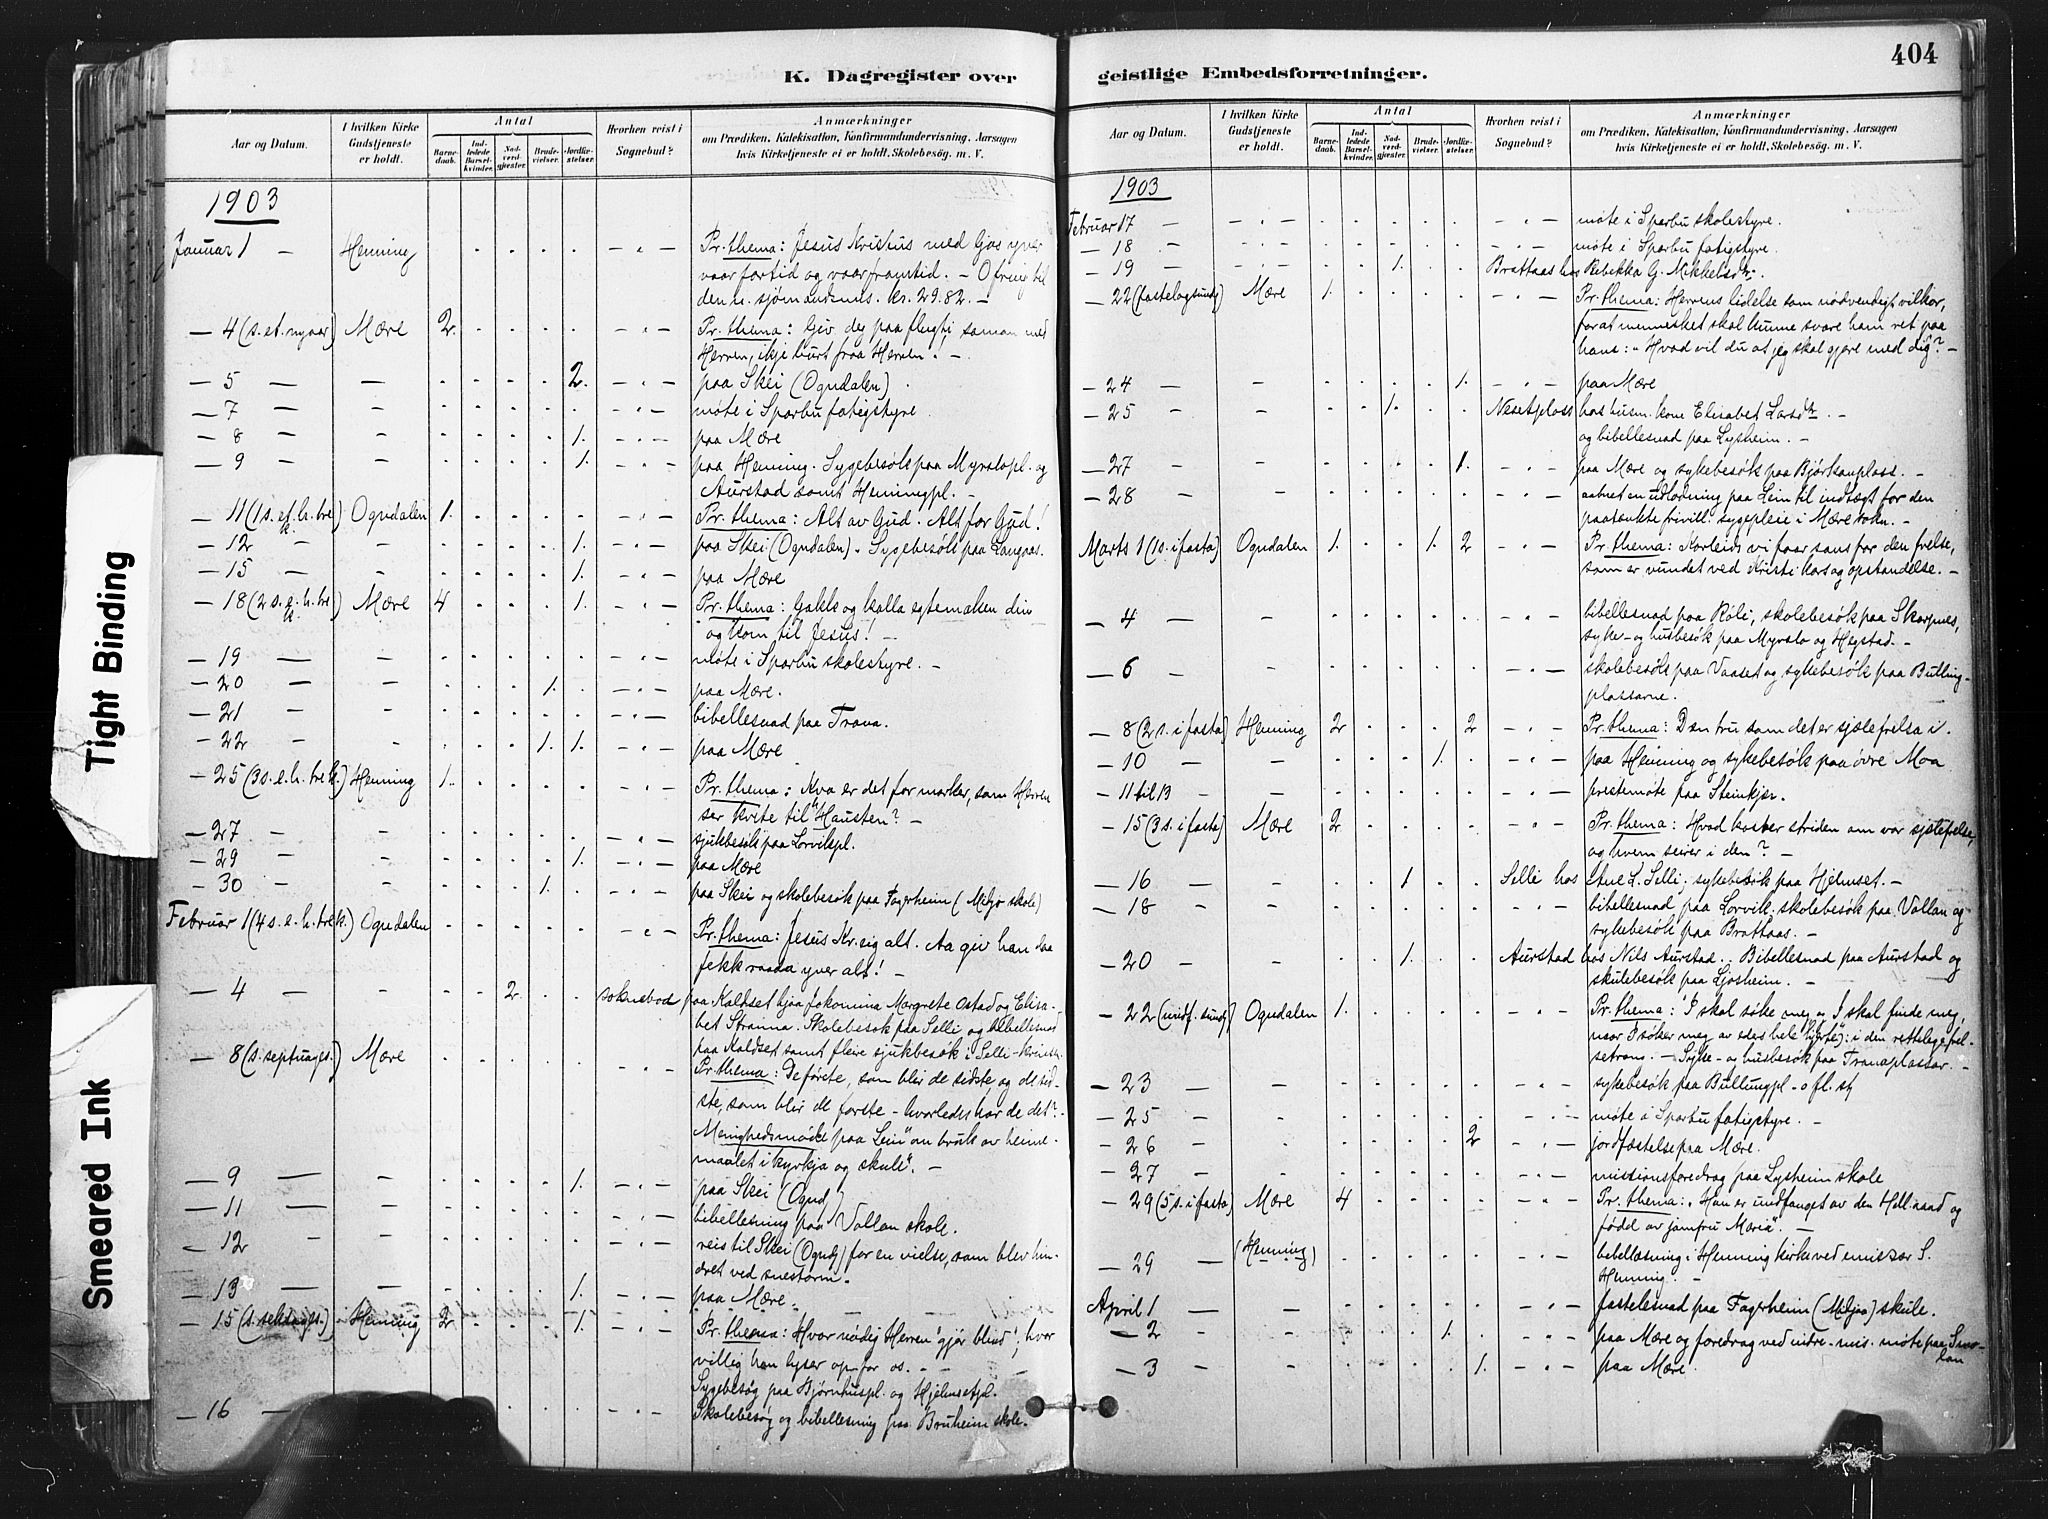 K. Dagregister over
Aar og Datum.
I hvilken Kirke Gudstjeneste er holdt.
Antal
Barnedaab.
Indledede Barselkvinder.
Nadverdgjæster.
Brudevielser.
Jordfæstelser.
Hvorhen reist i Sognebud?
Anmærkninger
om Prædiken, Katekisation, Konfirmandundervisning, Aarsagen
hvis Kirketjeneste ei er holdt, Skolebesøg m. V.
1903
Januar 1 — Henning — Pr. thema: Jesus Kristus med Gjos yver
vaar fortid og vaar framtid. — Ofring til
den n. sjømandsmis. kr. 29.82. —
— 4 (s. et. nyaar) Mære 2. — Pr. thema: Giv deg paa flugti, saman med
Herren, ikje burt fraa Herren. —
— 5 — — 2. — paa Skei (Ogndalen).
— 7 — — møte i Sparbu fatigstyre.
— 8 — — 1. — paa Mære
— 9 — — 1. — paa Henning. Sygebesøk paa Myrslopl. og
Aurstad samt Henningpl. —
— 11 (1 s. e. h. tre k) Ogndalen 1. — Pr. thema: Alt av Gud. Alt for Gud!
— 12 — — 1. — paa Skei (Ogndalen). Sygebesøk paa Langaas.
— 15 — — 1. — paa Mære
— 18 (2 s. e. h. tre k) Mære 4 1. — Pr. thema: Gakk og kalla egtemaken din
og kom til Jesus! —
— 19 — — møte i Sparbu skolestyre. —
— 20 — — 1. — paa Mære.
— 21 — — bibellesnad paa Trana.
— 22 — — 1. 1. — paa Mære
— 25 (3 s. e. h. trek.) Henning 1. — Pr. thema: Kva er det for marker, som Herren
ser kvite til Hausten? —
— 27 — — sjukbesøk paa Lorvikpl.
— 29 — — 1. — paa Mære
— 30 — — 1. — paa Skei og skolebesøk paa Fagerheim (Mitjo skole)
Februar 1 (4 s. e. h. trek.) Ogndalen — Pr. thema: Jesus Kr. eig alt. Aa giv han daa
fekk raada yver alt! —
— 4 — — 2. soknebod paa Kaldset hjaa Jakomina Margrete Østad og Elisa-
bet Stranna. Skolebesøk paa Selli og bibellesnad
paa Kaldset samt fleire sjukbesøk i Selli-krinsen.
— 8 (s. septuages.) Mære — Pr. thema: De første, som blir de sidste og de sid-
ste, som blir de første – hvorledes har de det?
Menighedsmøde paa Lein "om bruk av heime-
maalet i kyrkja og skule". —
— 9 — — 1. — paa Skei (Ognd)
— 11 — — bibellesning paa Vollan skole.
— 12 — — reis til Skei (Ognd) for en vielse, som blev hin-
dret ved snestorm.
— 13 — — 1. — paa Mære.
— 15 (s. seksages.) Henning 2. 1. — Pr. thema: Hvor nødig Herren 'gjør blind'; hvor
villig han lyser op for os. —
Sygebesøg paa Bjørnhuspl. og Hjelmsetpl.
— 16 — Skolebesøg og bibellesning paa Bruheim skole.
404
geistlige Embedsforretninger.
Aar og Datum.
I hvilken Kirke Gudstjeneste er holdt.
Antal
Barnedaab.
Indledede Barselkvinder.
Nadverdgjæster.
Brudevielser.
Jordfæstelser.
Hvorhen reist i Sognebud?
Anmærkninger
om Prædiken, Katekisation, Konfirmandundervisning, Aarsagen
hvis Kirketjeneste ei er holdt, Skolebesøg m. V.
1903
Februar 17 — — møte i Sparbu skolestyre.
— 18 — — møte i Sparbu fatigstyre.
— 19 — — 1. Brattaas hos Rebekka G. Mikkelsdtr.
— 22 (fastelagsundg) Mære 1. — Pr. thema: Herrens lidelse som nødvendigt vilkor,
for at mennesket skal kunne svare ham ret paa
hans: "Hvad vil du at jeg skal gjøre med dig"? —
— 24 — — 1. — paa Mære
— 25 — — 1. Nesetplass hos husm. kone Elisabet Larsdtr. —
og bibellesnad paa Lysheim. —
— 27 — — 1. — paa Mære og sykebesøk paa Bjørkanplass. —
— 28 — — aabnet en utlodning paa Lein til indtægt for den
paatænkte frivill. sygepleie i Mære sokn. —
Marts 1 (1 s. i fasta) Ogndalen 1. 1. 2 — Pr. thema: Korleids vi faar sans for den frelse,
som er vundet ved Kristi kors og opstandelse. —
— 4 — — bibellesnad paa Røli, skolebesøk paa Skarpnes,
syke- og husbesøk paa Myrslo og Hegstad. —
— 6 — — skolebesøk paa Vaaset og sykebesøk paa Bulling-
plassarne.
— 8 (2 s. i fasta) Henning 2 2 — Pr. thema: Den tru som det er sjælefrelsa i.
— 10 — — 1. — paa Henning og sykebesøk paa øvre Moa
— 11 til 13 — prestemøte paa Steinkjer.
— 15 (3 s. i fasta) Mære 2. — Pr. thema: Hvad koster striden om vor sjælefrelse,
og hvem seirer i den? —
— 16 — — 1 Selli hos Ane L. Selli; sykebesøk paa Hjelmset. —
— 18 — — bibellesnad paa Lorvik. skolebesøk paa Vollan og
sykebesøk paa Brattaas. —
— 20 — — 1. Aurstad hos Nils Aurstad. Bibellesnad paa Aurstad og
skulebesøk paa Ljosheim. —
— 22 (midf. sundg) Ogndalen 1. — Pr. thema: 'I skal søke meg og I skal finde meg,
naar I søker meg av eders hele hjerte'; i den rettelege frel-
setrong. — Syke- og husbesøk paa Tranaplassar. —
— 23 — — sykebesøk paa Bullungpl. o fl. st
— 25 — — møte i Sparbu fatigstyre. —
— 26 — — 2 — jordfæstelse paa Mære.
— 27 — — missionsforedrag paa Lysheim skole
— 29 (5 s. i fasta) Mære 4 — Pr. thema: "Han er undfanget av den Hell. aad og
fødd av jomfru Maria". —
— 29 — (Henning) — bibellæsning i Henning kirke ved emissær S.
Henning. —
April 1 — — fastelesnad paa Fagerheim (Mitjo) skule.
— 2 — — 1. — paa Mære og foredrag ved indre-mis. møte paa Smo-
lan
— 3 — — 1. — paa Mære.
Tight Binding
Smeared Ink